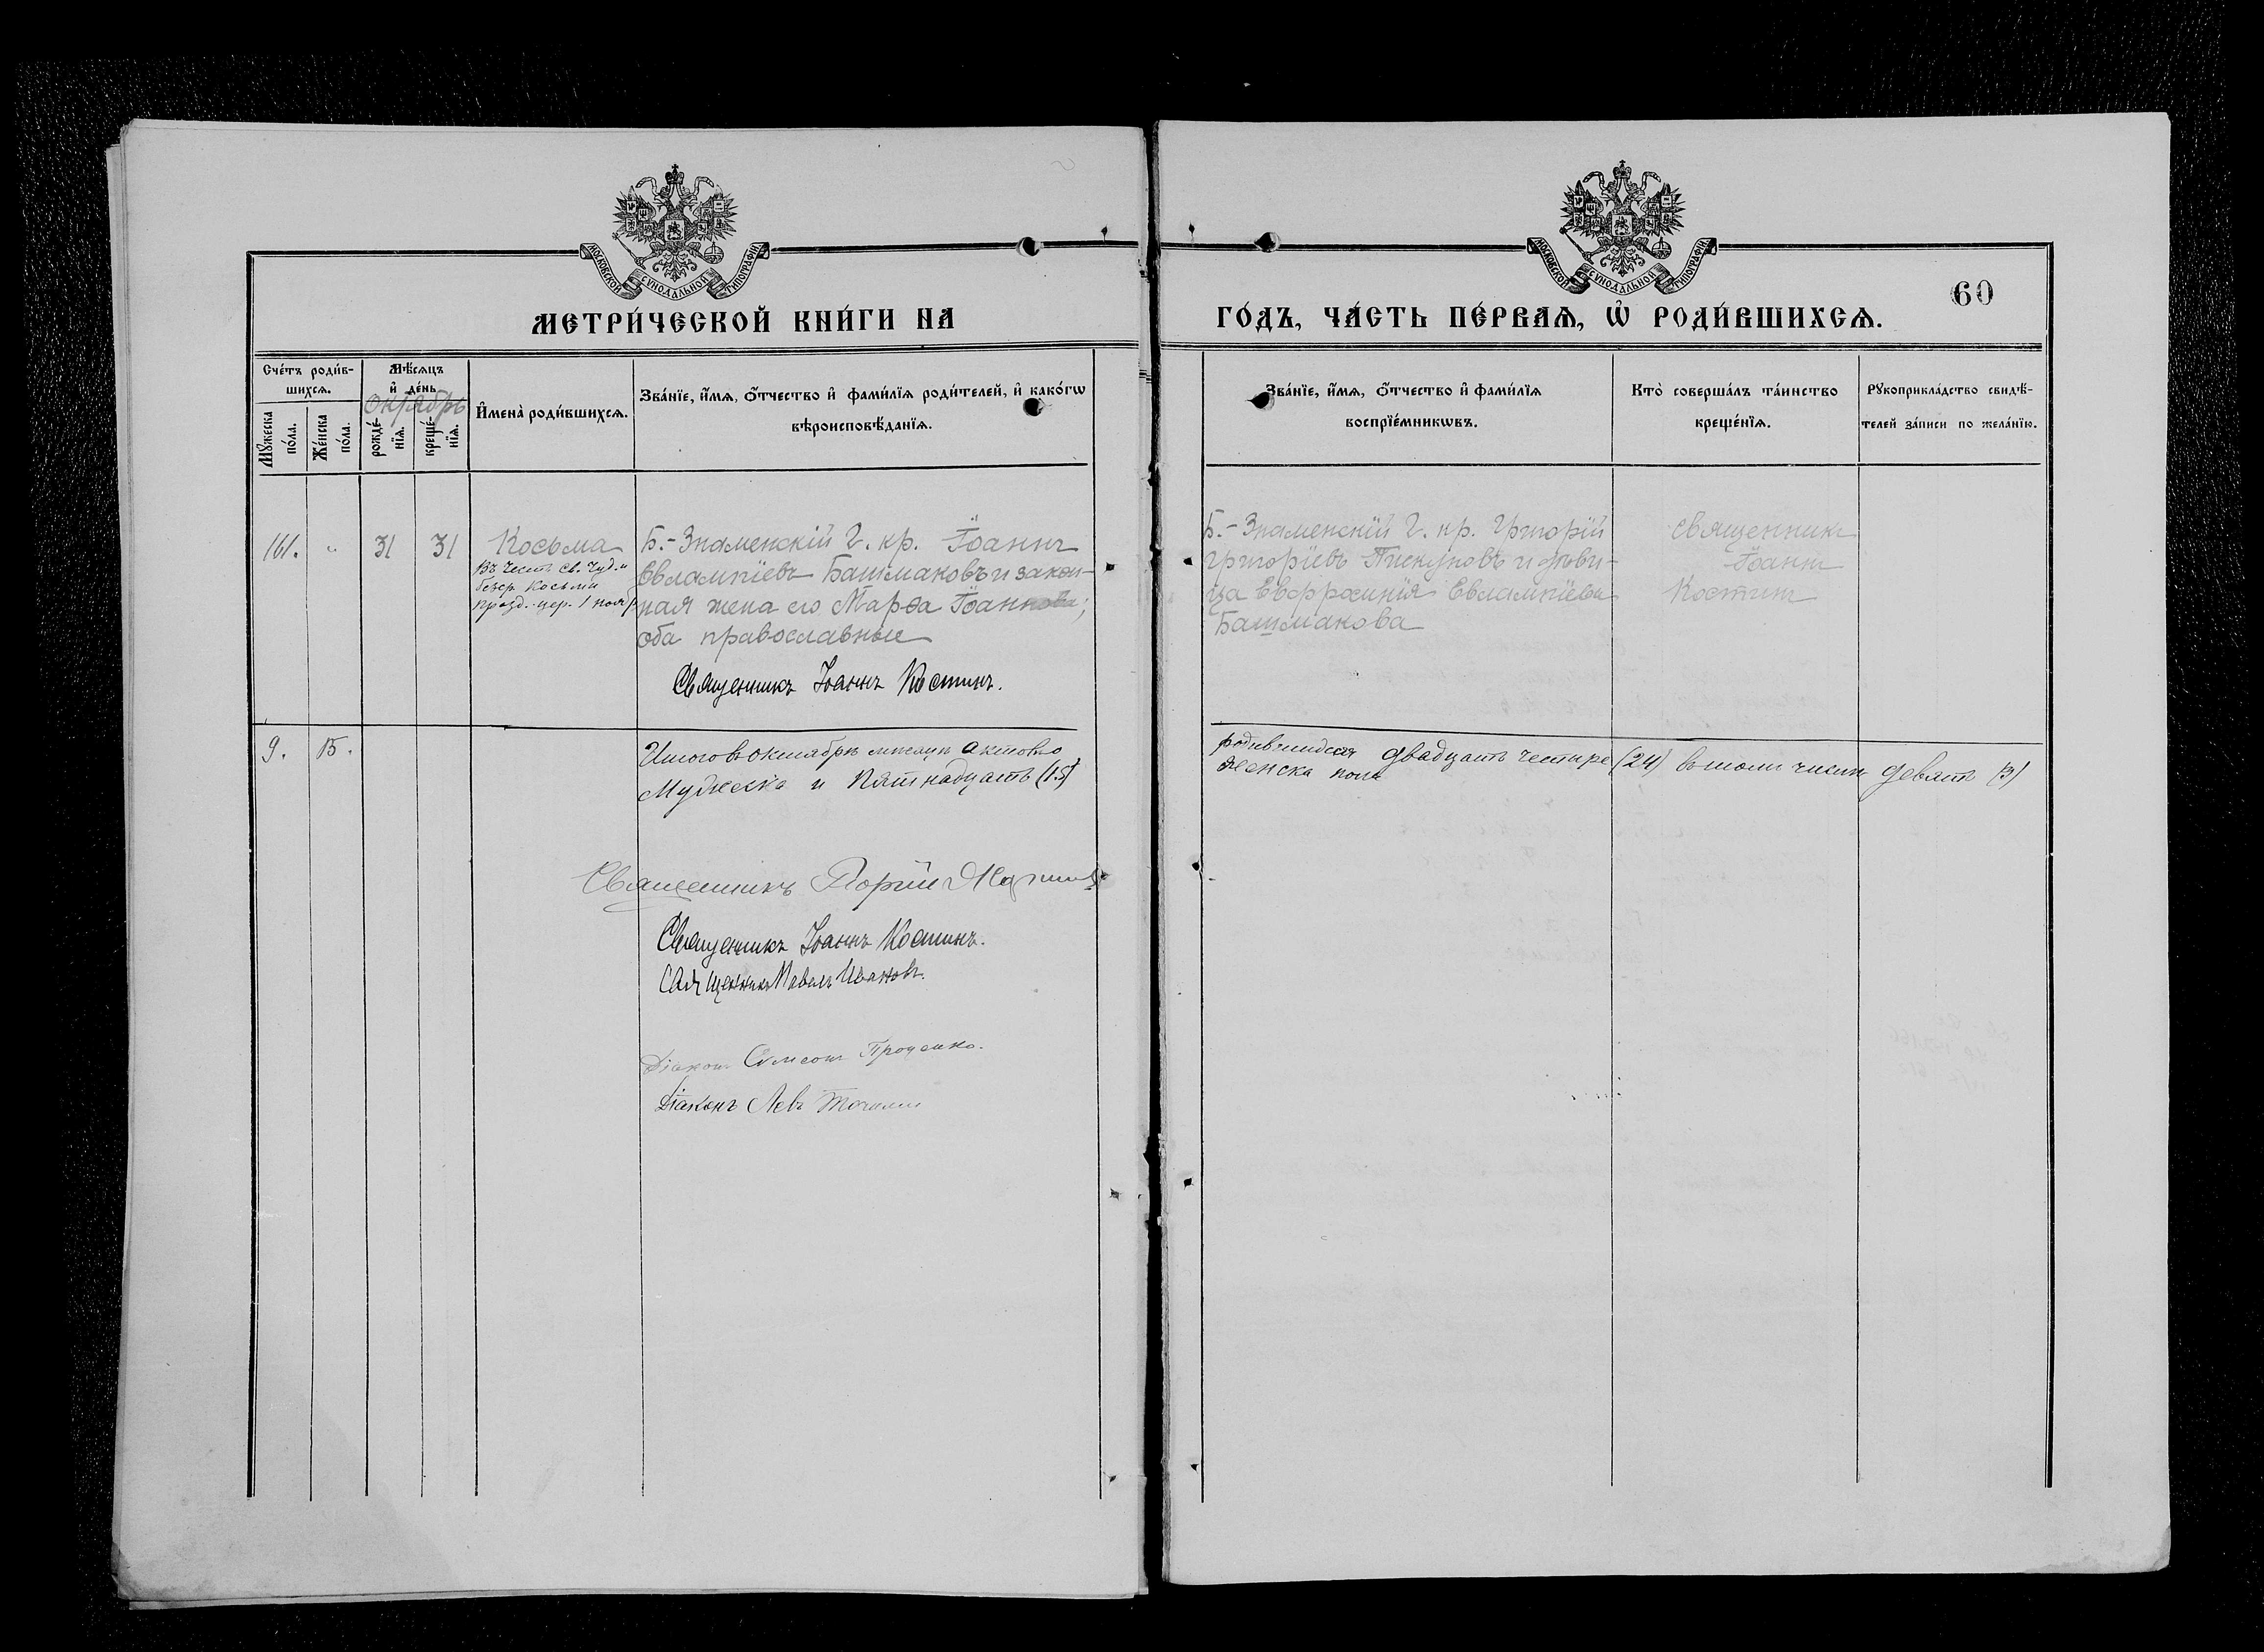 МОСКОВСКОЙ СѴНОДАЛЬНОЙ ТИПОГРАФИИ
МОСКОВСКОЙ СѴНОДАЛЬНОЙ ТИПОГРАФИИ
60
МЕТРИ́ЧЕСКОЙ КНИ́ГИ НА ГО́ДЪ, ЧА́СТЬ ПЕ́РВАѦ, Ѡ҆ РОДИ́ВШИХСѦ.
Сче́тъ роди́в-
шихсѧ.
Мꙋ́жеска по́ла.
Же́нска по́ла.
Мѣ́сѧцъ
и҆ де́нь
Октябрь
рожде́-
нїѧ.
креще́-
нїѧ.
И҆мена̀ роди́вшихсѧ.
Зва́нїе, и҆́мѧ, ѻ҆́тчество и҆ фами́лїѧ роди́телей, и҆ како́гѡ
вѣроисповѣ́данїѧ.
Зва́нїе, и҆́мѧ, ѻ҆́тчество и҆ фами́лїѧ
воспрїе́мникѡвъ.
Кто̀ соверша́лъ та́инство
креще́нїѧ.
Рꙋкоприкла́дство свидѣ́-
телей за́писи по жела́нїю.
161. „ 31 31
Косьма
Въ честь св. Чуд. и
безср. Косьмы
празд. цер. 1 нояб
Б.-Знаменскій Г. кр. Іоаннъ
Евлампіевъ Башмаковъ и закон-
ная жена его Марѳа Іоаннова;
оба православные
Священникъ Іоаннъ Костинъ.
Б.-Знаменскій Г. кр. Григорій
Григоріевъ Пискуновъ и дѣви-
ца Евфросинія Евлампіева
Башмакова
Священникъ
Іоаннъ
Костинъ
9. 15.
Итого въ октябрѣ мѣсяцѣ актовъ о родившихся двадцать четыре (24) въ томъ числѣ девять (9)
Мужеска и пятнадцать (15) женска пола
Священникъ
Священникъ Іоаннъ Костинъ.
Священникъ Павелъ Ивановъ.
Діаконъ Сѵмеонъ Проценко.
Діаконъ Левъ